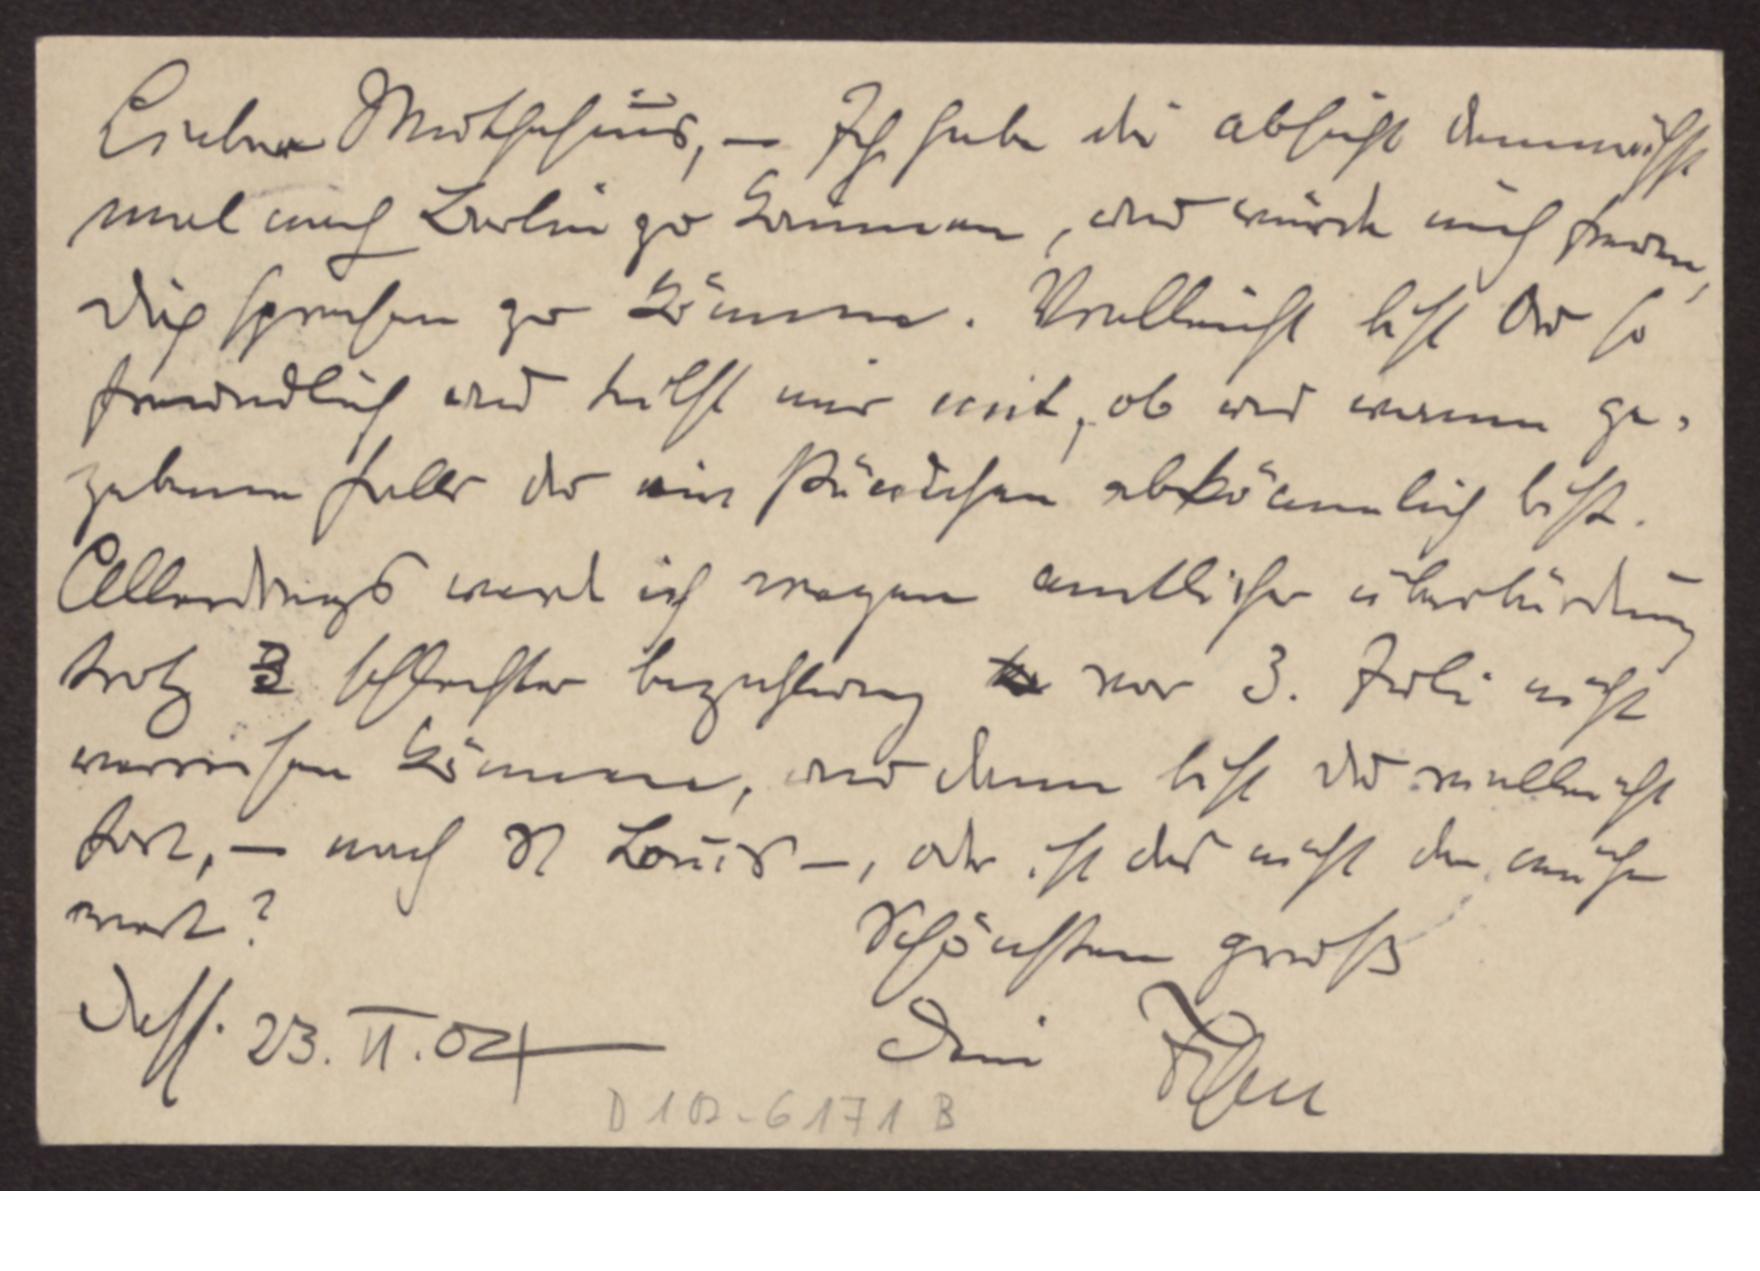 Lieber Muthesius, – Ich habe die absicht demnächst
mal nach Berlin zu kommen, und würde mich freuen,
dich sprechen zu können. Vielleicht bist Du so
freundlich und teilst mir mit, ob und wann ge-
gebenen falls du ein stündchen abkömmlich bist.
Allerdings werd ich wegen amtlicher überbürdung
trotz schlechter bezahlung vor 3. Juli nicht
verreisen können, und dann bist du vielleicht
fort, – nach St Louis –, oder ist das nicht der mühe
wert?
Schönsten gruß
Dein
Dss. 23. VI. 04
D 102-6171 B